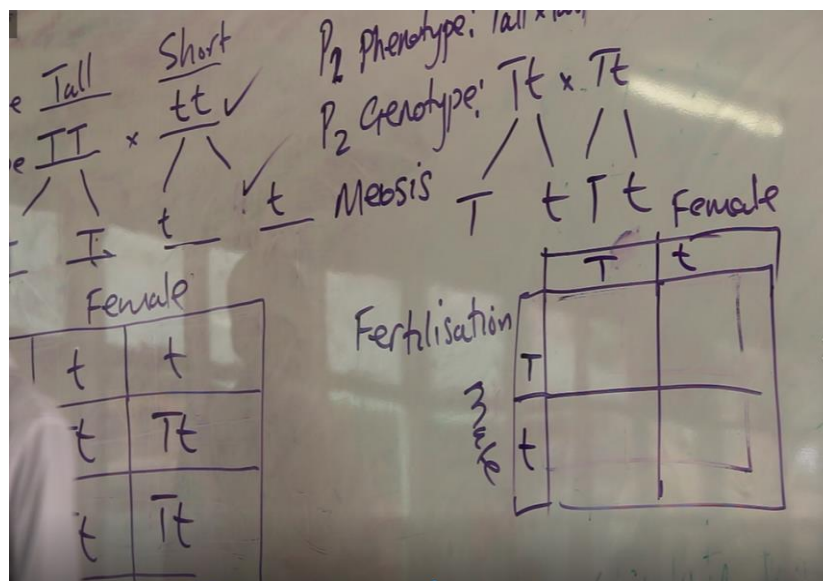 Tall Short
TT × tt
t t
Female
t t
t Tt
t Tt
P2 Phenotype: Tall x Tall
P2 Genotype: Tt × Tt
Meosis T t T t
Female
T t
Fertilisation
Male
T
t